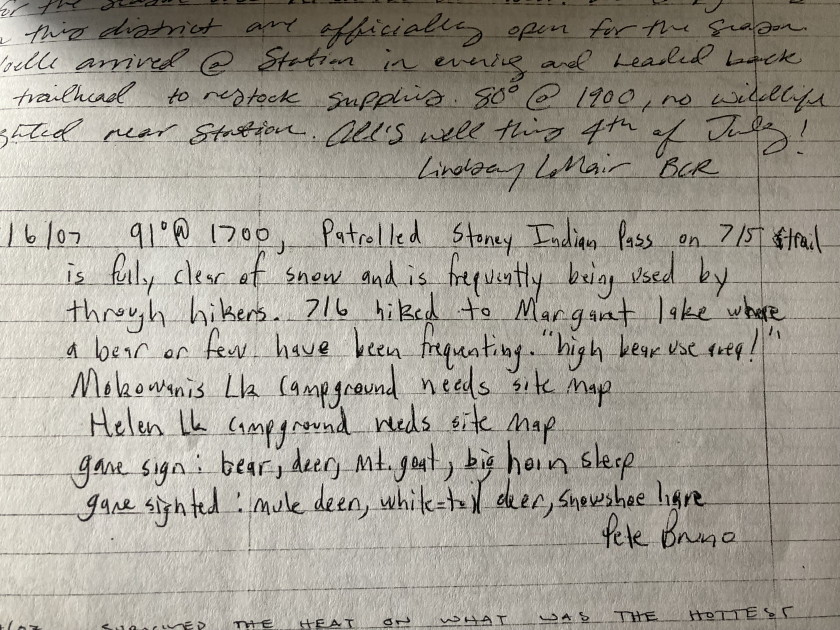 for the season
this district are officially open for the season.
arrived @ Station in evening and headed back
trailhead to restock supplies. 80° @ 1900, no wildlife
near Station. All's well this 4th of July!
Lindsay BCR
/6/07 91° @ 1700, Patrolled Stoney Indian Pass on 7/5 trail
is fully clear of snow and is frequently being used by
through hikers. 7/6 hiked to Margaret lake where
a bear or few have been frequenting. "high bear use area!"
Mokowanis Lk Campground needs site map
Helen Lk Campground needs site map
game sign: bear, deer, Mt. goat, big horn sleep
game sighted: mule deer, white-tail deer, snowshoe hare
Pete Bruno
SURVIVED THE HEAT ON WHAT WAS THE HOTTEST